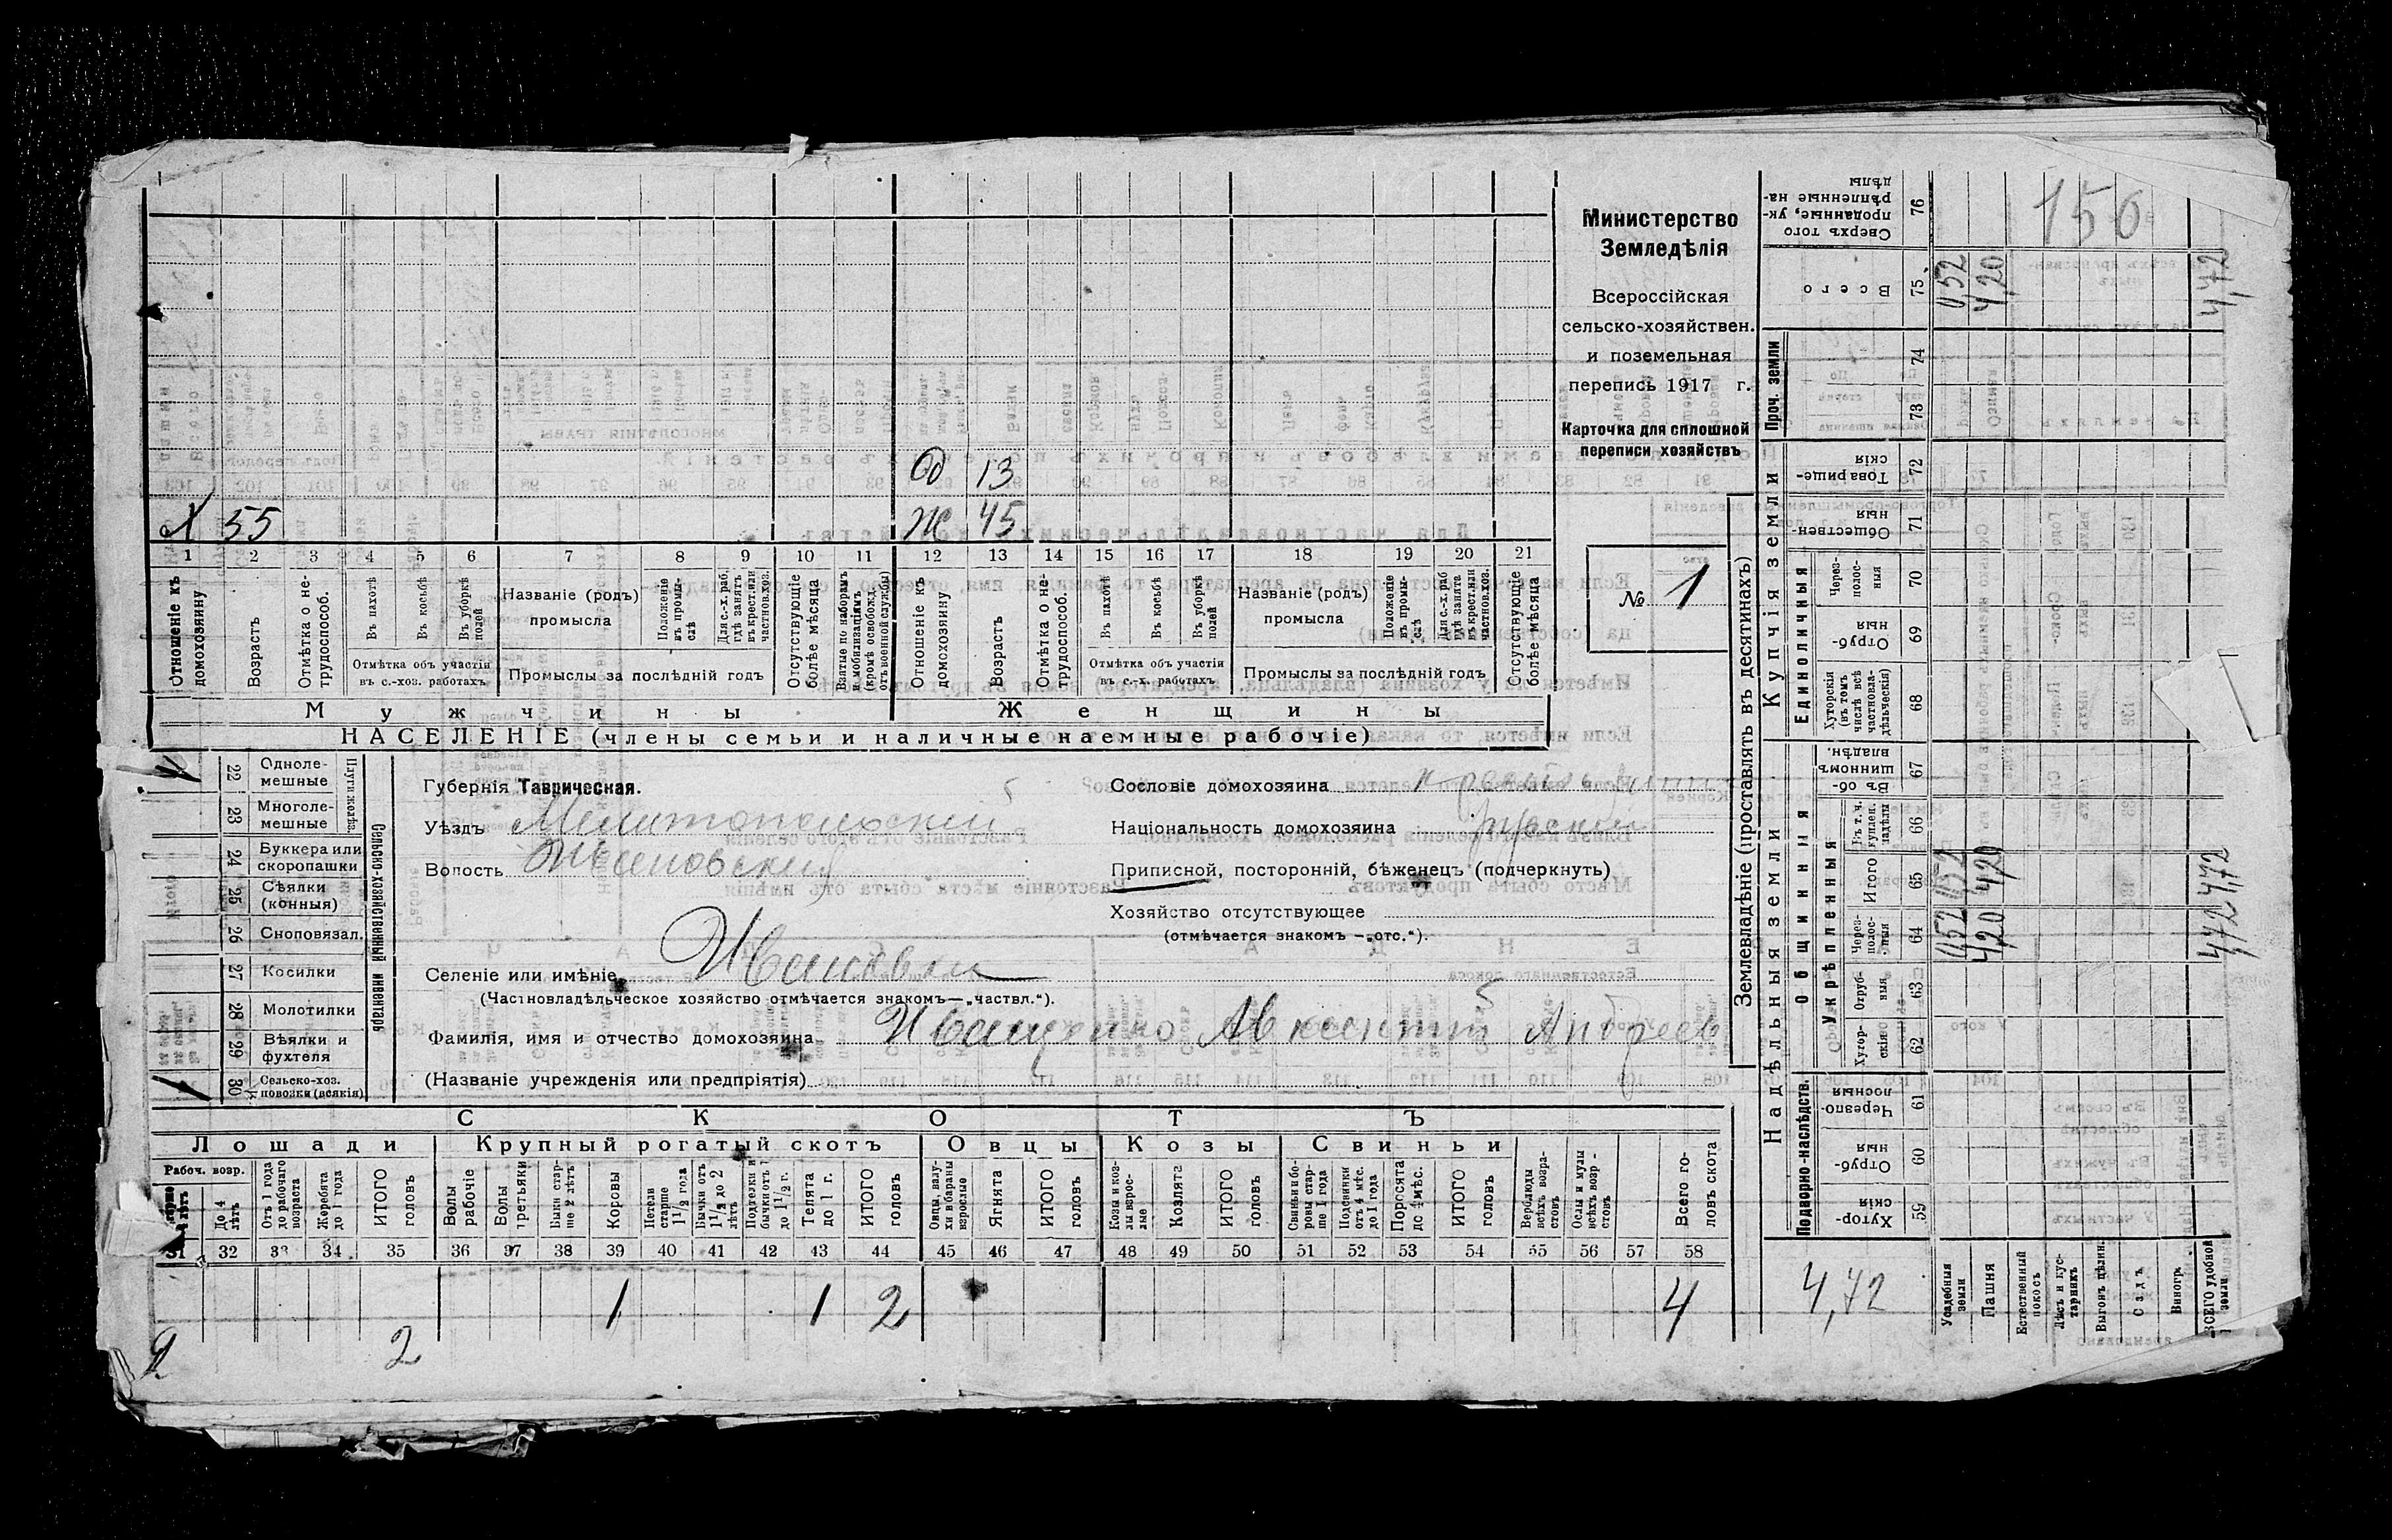 Х 55 Ж 45
д 13
1 2 3 4 5 6 7 8 9 10 11 12 13 14 15 16 17 18 19 20 21
Отношеніе къ домохозяину
Возрастъ
Отмѣтка о не-трудоспособ.
Въ пахотѣ
Въ косьбѣ
Въ уборкѣ полей
Отмѣтка объ участіи
въ с.-хоз. работахъ
Названіе (родъ)
промысла
Положеніе въ промы-слѣ
Для с.-х. раб. гдѣ занятъ въ крест. или частновл. хоз.
Промыслы за послѣдній годъ
Отсутствующіе болѣе мѣсяца
Взятые по наборамъ и мобилизаціямъ (кромѣ освобожд. отъ военной службы)
Отношеніе къ домохозяину
Возрастъ
Отмѣтка о не-трудоспособ.
Въ пахотѣ
Въ косьбѣ
Въ уборкѣ полей
Отмѣтка объ участіи
въ с.-х. работахъ
Названіе (родъ)
промысла
Положеніе въ промы-слѣ
Для с.-х. раб. гдѣ занята въ крест. или частнов. хоз.
Промыслы за послѣдній годъ
Отсутствующіе болѣе мѣсяца
Мужчины Женщины
НАСЕЛЕНІЕ (члены семьи и наличные наемные рабочіе)
Министерство
Земледѣлія
Всероссійская
сельско-хозяйствен.
и поземельная
перепись 1917 г.
Карточка для сплошной
переписи хозяйствъ
№ 1
1 22 Однолемешные
23 Многолемешные
Плуги желѣз.
24 Буккера или скоропашки
25 Сѣялки (конныя)
26 Сноповязал.
27 Косилки
28 Молотилки
29 Вѣялки и фухтеля
1 30 Сельско-хоз. повозки (всякія)
Сельско-хозяйственный инвентарь
Губернія Таврическая.
Уѣздъ Мелитопольскій
Волость
Селеніе или имѣніе Ивановка
(Частновладѣльческое хозяйство отмѣчается знакомъ—„частвл.“).
Фамилія, имя и отчество домохозяина Иващенко Авксентій Андреев
(Названіе учрежденія или предпріятія)
Сословіе домохозяина
Національность домохозяина русскій
Приписной, посторонній, бѣженецъ (подчеркнуть)
Хозяйство отсутствующее
(отмѣчается знакомъ —„отс.“).
СКОТЪ
Лошади Крупный рогатый скотъ Овцы Козы Свиньи
Рабоч. возр.
До 4 лѣтъ
Отъ 1 года до рабочаго возраста
Жеребята до 1 года
ИТОГО головъ
Волы рабочіе
Волы третьяки
Быки старше 2 лѣтъ
Коровы
Нетели старше 1½ года
Бычки отъ 1½ до 2 лѣтъ
Подтелки и бычки отъ 1 до 1½ г.
Телята до 1 г.
ИТОГО головъ
Овцы, валухи и бараны взрослые
Ягнята
ИТОГО головъ
Козы и козлы взрослые
Козлята
ИТОГО головъ
Свиньи и боровы старше 1 года
Подсвинки отъ 4 мѣс. до 1 года
Поросята до 4 мѣс.
ИТОГО головъ
Верблюды всѣхъ возрастовъ
Ослы и мулы всѣхъ возр-стовъ
Всего головъ скота
31 32 33 34 35 36 37 38 39 40 41 42 43 44 45 46 47 48 49 50 51 52 53 54 55 56 57 58
2 2 1 1 2 4
Землевладѣніе (проставлять въ десятинахъ)
Надѣльныя земли
Купчія земли
Проч. земли
Подворно-наслѣдств.
Общинныя
Укрѣпленныя
Единоличныя
Сверхъ того проданные, укрѣпленные надѣлы 76
Всего 75 0,52 4,20 4,72
74
73
Товарищескія 72
Общественныя 71
Черезполосныя 70
Отрубныя 69
Хуторскія (въ томъ числѣ всѣ частновладѣльческія) 68
Въ общинномъ владѣн. 67
Въ т. ч. куплен. надѣлы 66
Итого 65 0,52 4,20 4,72
Черезполосныя 64 0,52 4,20 4,72
Отрубныя 63
Хуторскіе 62
Черезполосныя 61
Отрубныя 60
Хуторскія 59
4,72
Усадебныя земли
Пашня
Естественный покосъ
Лѣсъ и кустарникъ
Выгонъ цѣлин.
Садъ
Виногр.
ВСЕГО удобной земли
156